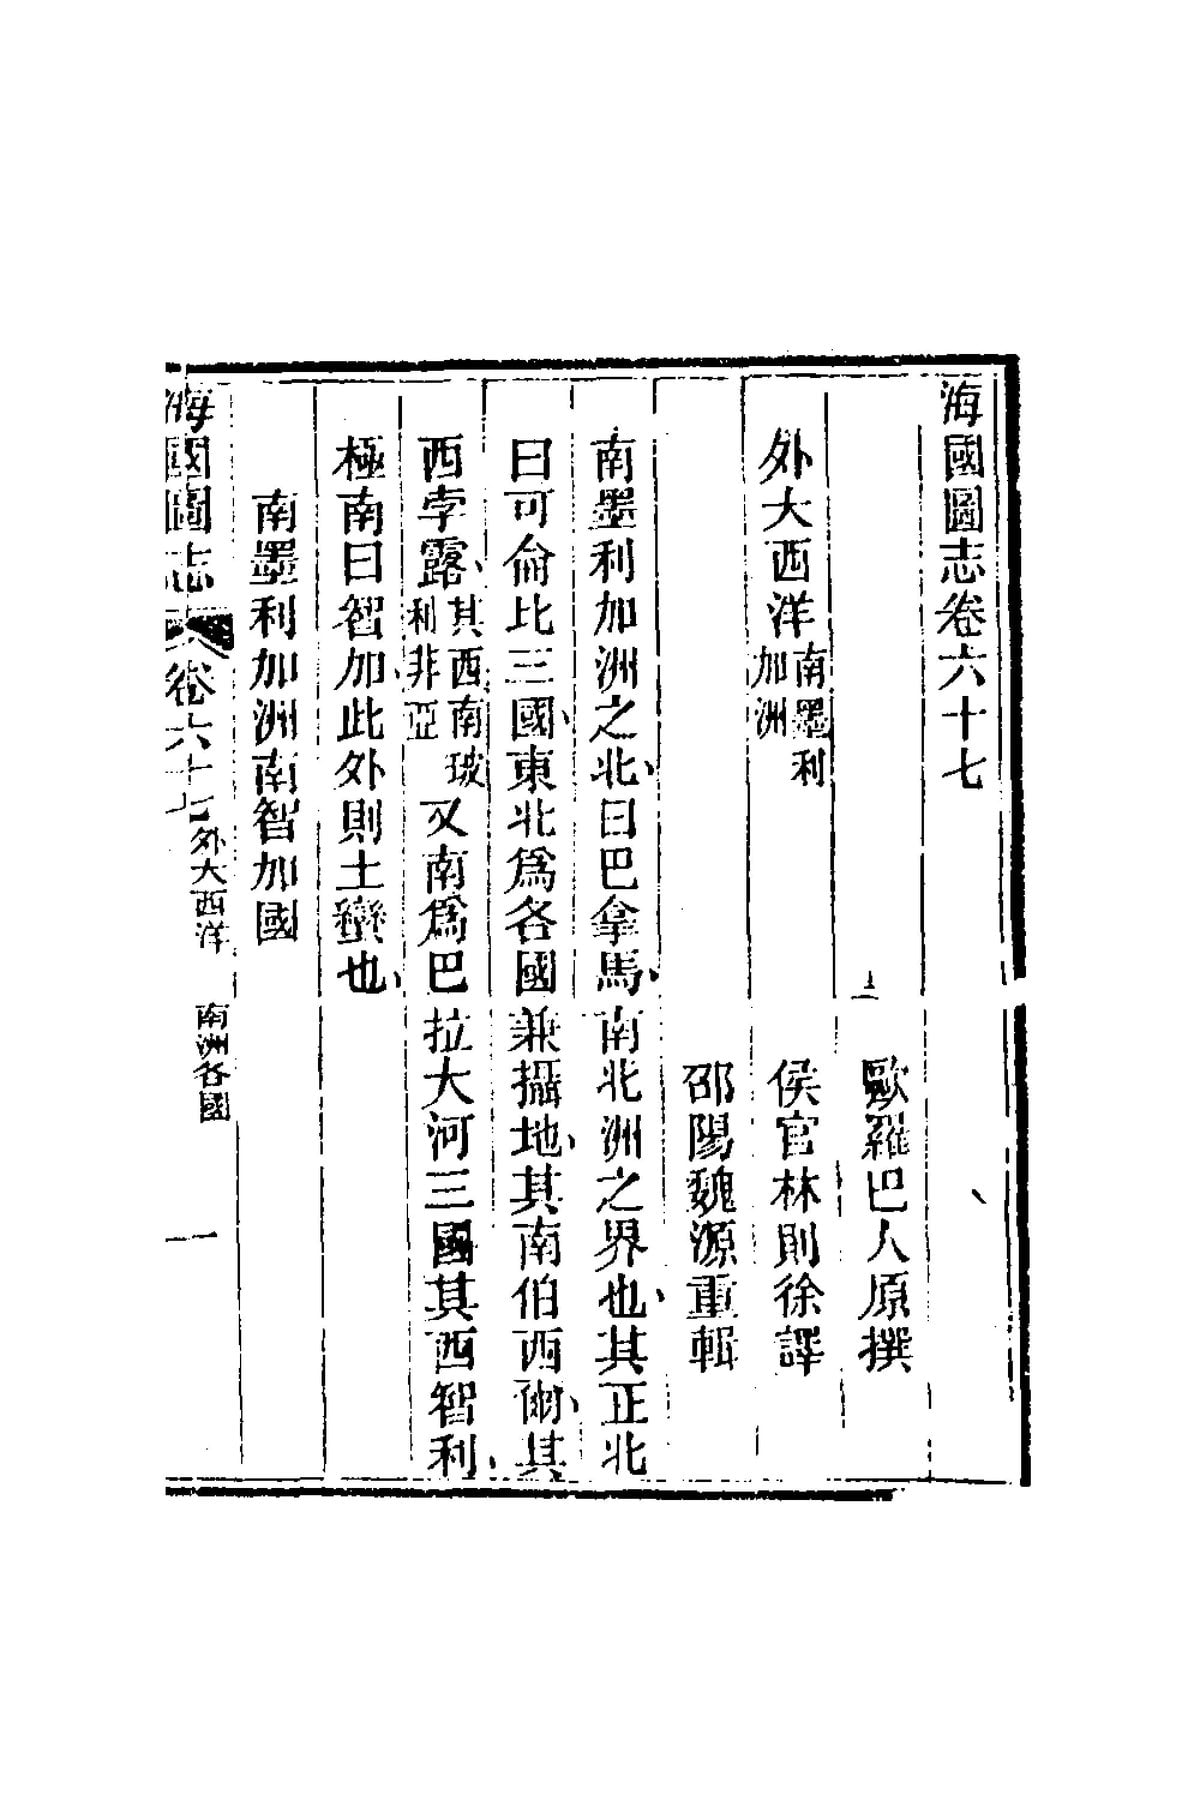 海國圖志卷六十七
歐羅巴人原撰
外大西洋南墨利加洲
侯官林則徐譯
邵陽魏源重輯
南墨利加洲之北曰巴拿馬南北洲之界也其正北
曰可侖比三國東北爲各國兼攝地其南伯西爾其
西孛露其西南玻利非亞又南爲巴拉大河三國其西智利
極南曰智加此外則土蠻也
南墨利加洲南智加國
海國圖志 卷六十七 外大西洋 南洲各國 一